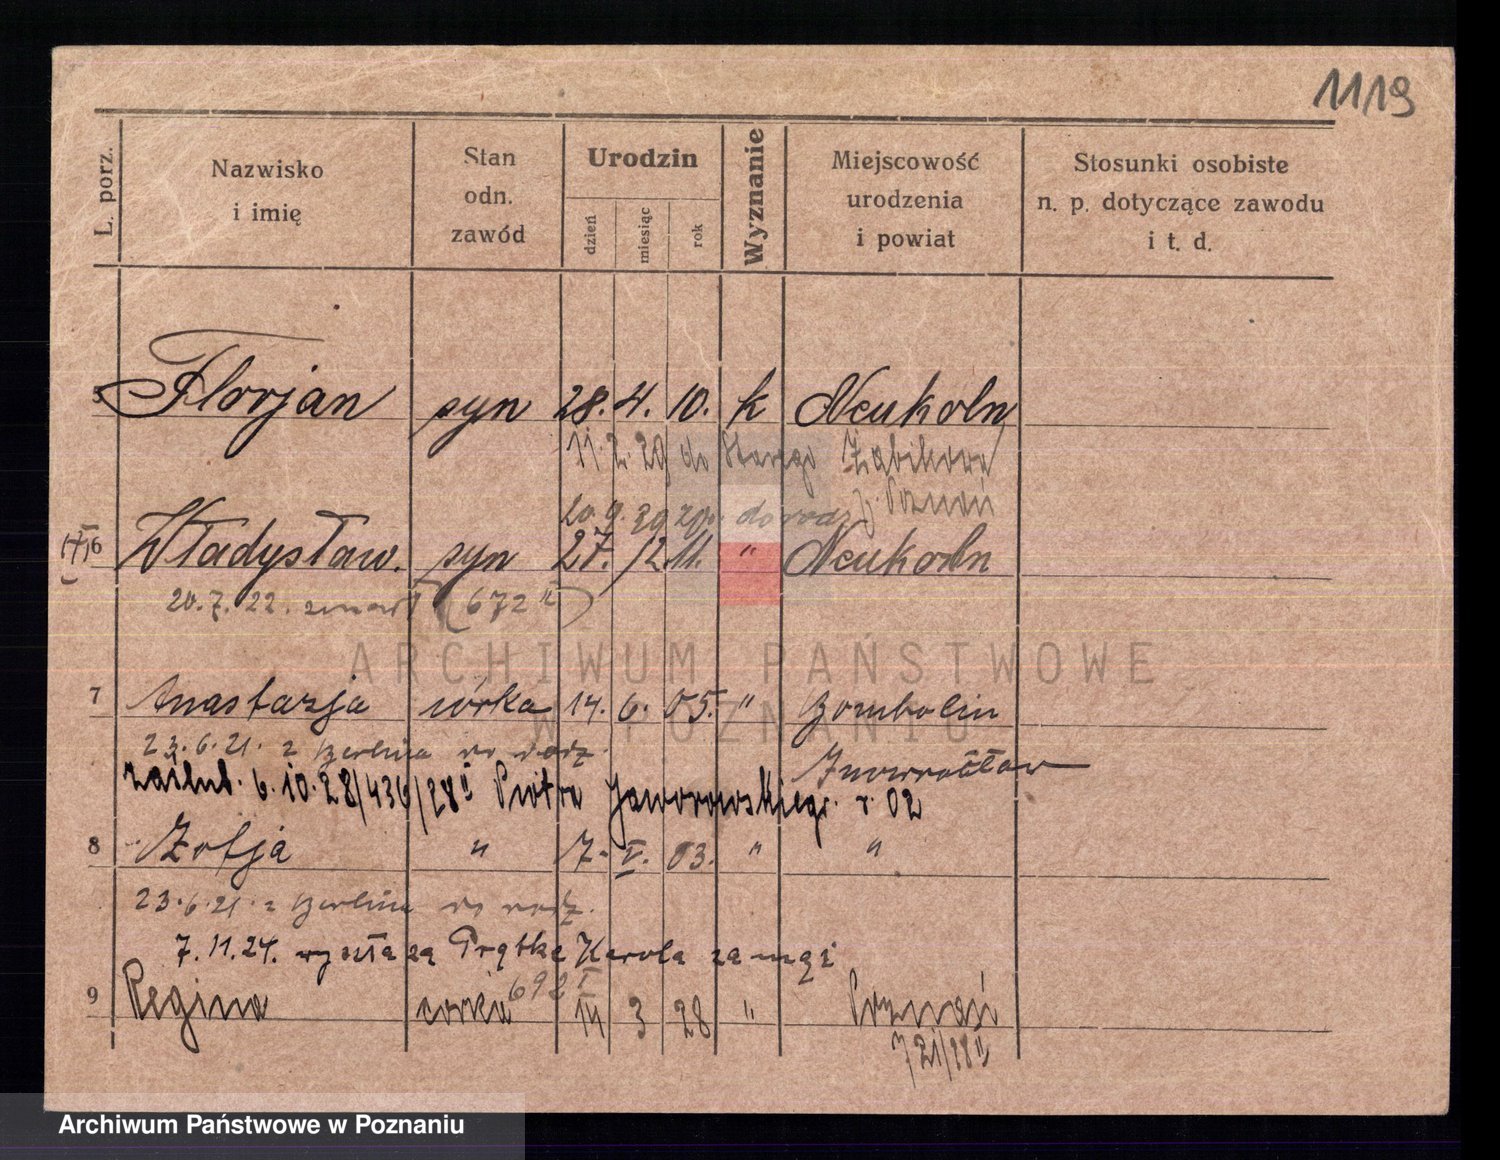 1119
L. porz.
Nazwisko
i imię
Stan
odn.
zawód
Urodzin
dzień
miesiąc
rok
Wyznanie
Miejscowość
urodzenia
i powiat
Stosunki osobiste
n. p. dotyczące zawodu
i t. d.
5 Florjan syn 28. 4. 10. k Neukoln
11. 2. 29 do Starego Żabikowa
p. Poznań
20. 9. 29 do rodz.
6 Władysław. syn 27. 12. 11. " Neukoln
20. 7. 22. zmarł (672 II)
ARCHIWUM PAŃSTWOWE
W POZNANIU
7 Anastazja córka 14. 6. 05. " Gombolin
23. 6. 21. z Berlina do rodz. Inowrocław
zaślub. 6. 10. 28/436/28 II Piotra Jaworowskiego. r. 02
8 Zofja " 7. V. 03. " "
23. 6. 21. z Berlina do rodz.
7. 11. 24. wyszła za Prątke Karola za mąż
692 I
9 Regina córka 14 3 28 " Poznań
721/28 II
Archiwum Państwowe w Poznaniu